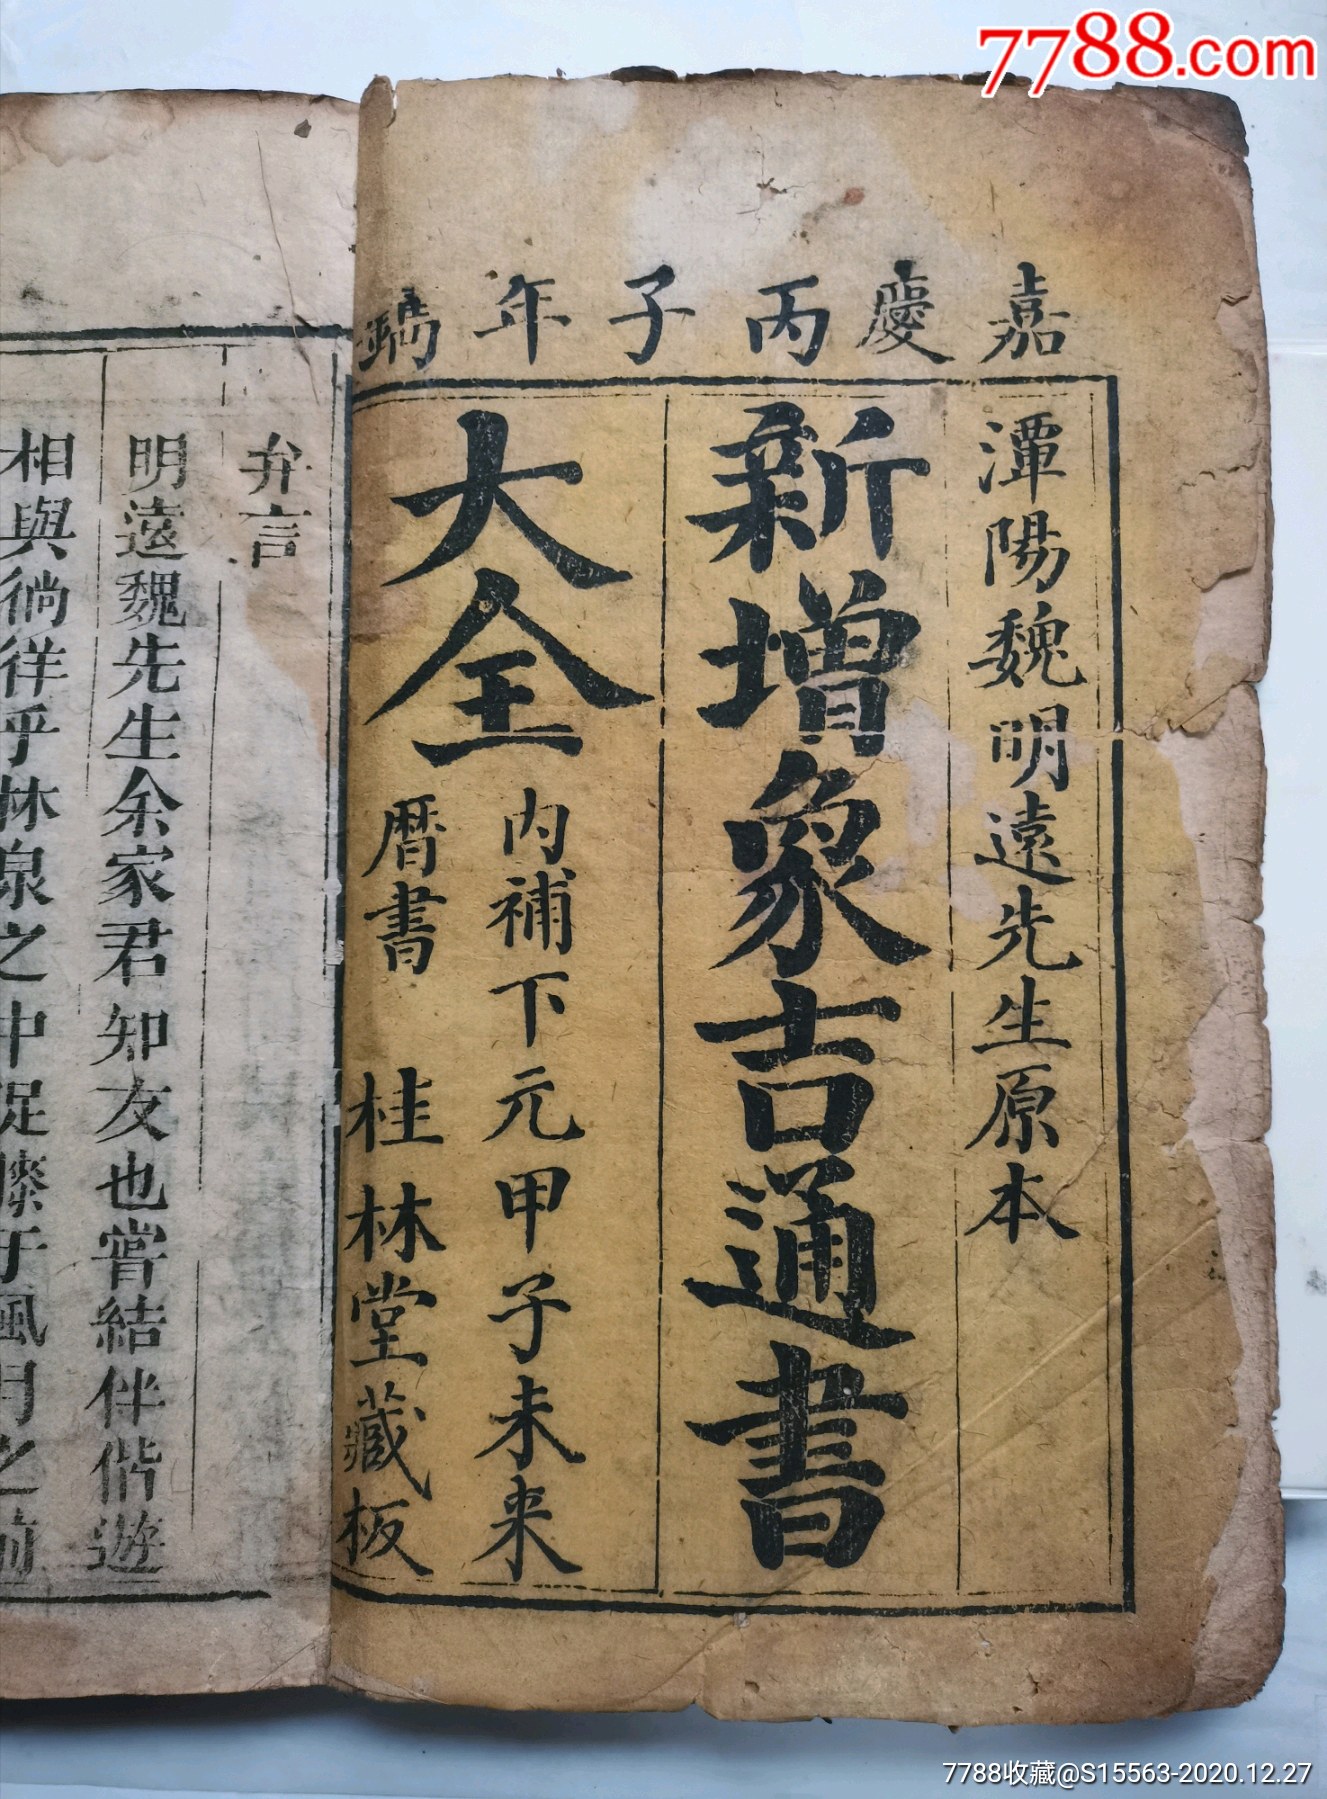 7788.com
嘉慶丙子年鐫
潭陽魏明遠先生原本
新增象吉通書
大全
内補下元甲子未来
曆書
桂林堂藏板
弁言
明遠魏先生余家君知友也嘗結伴偕遊
相與徜徉乎林泉之中促膝于風月之前
7788收藏@S15563-2020.12.27